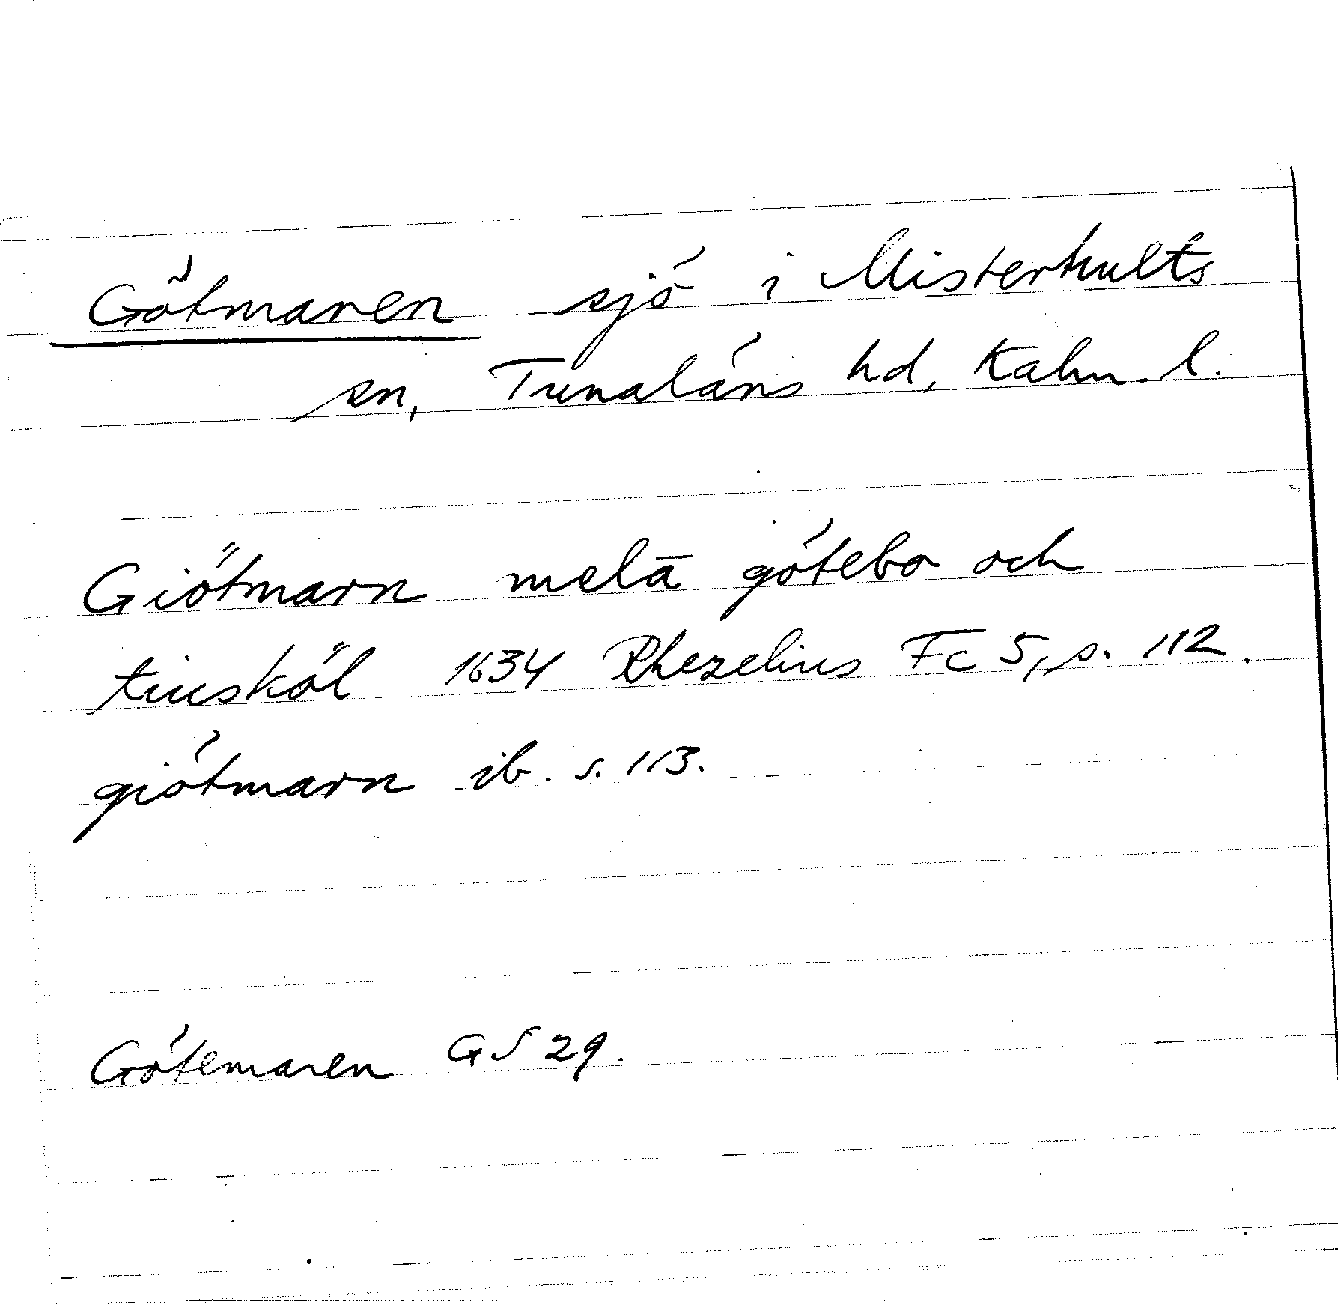 Götmaren sjö i Misterhults
sn, Tunaläns hd, Kalm. l.
Giötmarn melā götebo och
kiusköl 1634 Rhezelius Fc 5, s. 112.
giötmarn ib. s. 113.
Götemaren GS 29.